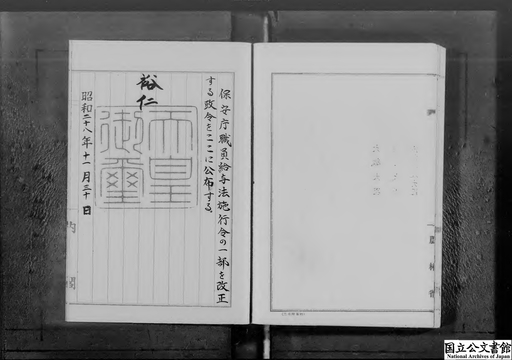 保安庁職員給与法施行令の一部を改正
する政令をここに公布する。
裕仁
天皇御璽
昭和二十八年十一月三十日
内閣
国立公文書館
National Archives of Japan